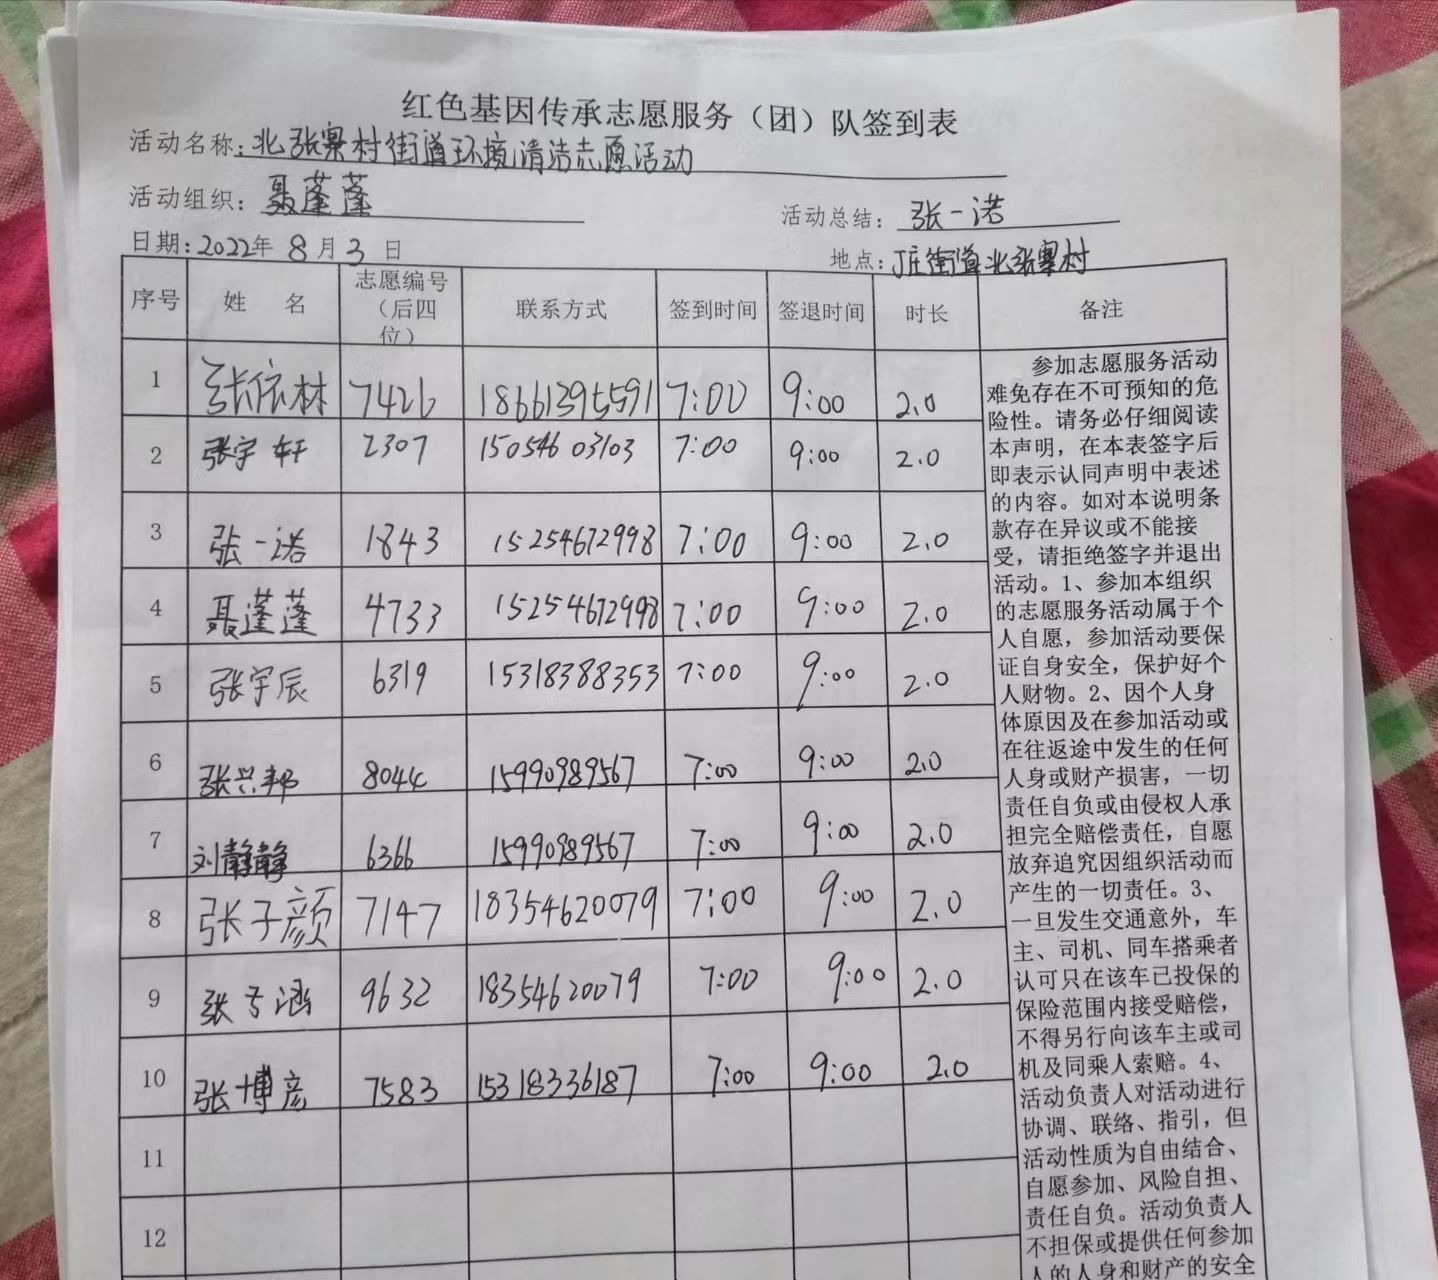 红色基因传承志愿服务（团）队签到表
活动名称：北张寨村街道环境清洁志愿活动
活动组织：聂蓬蓬 活动总结：张一诺
日期：2022年8月3日 地点：丁庄街道北张寨村
序号 姓 名 志愿编号（后四位） 联系方式 签到时间 签退时间 时长 备注
1 张依林 7426 18661395591 7:00 9:00 2.0
2 张宇轩 2307 15054603103 7:00 9:00 2.0
3 张一诺 1843 15254672998 7:00 9:00 2.0
4 聂蓬蓬 4733 15254672998 7:00 9:00 2.0
5 张宇辰 6319 15318388353 7:00 9:00 2.0
6 张兴邦 8044 15990989567 7:00 9:00 2.0
7 刘静静 6366 15990989567 7:00 9:00 2.0
8 张子颜 7147 18354620079 7:00 9:00 2.0
9 张子涵 9632 18354620079 7:00 9:00 2.0
10 张博彦 7583 15318336187 7:00 9:00 2.0
11
12
参加志愿服务活动
难免存在不可预知的危
险性。请务必仔细阅读
本声明，在本表签字后
即表示认同声明中表述
的内容。如对本说明条
款存在异议或不能接
受，请拒绝签字并退出
活动。1、参加本组织
的志愿服务活动属于个
人自愿，参加活动要保
证自身安全，保护好个
人财物。2、因个人身
体原因及在参加活动或
在往返途中发生的任何
人身或财产损害，一切
责任自负或由侵权人承
担完全赔偿责任，自愿
放弃追究因组织活动而
产生的一切责任。3、
一旦发生交通意外，车
主、司机、同车搭乘者
认可只在该车已投保的
保险范围内接受赔偿，
不得另行向该车主或司
机及同乘人索赔。4、
活动负责人对活动进行
协调、联络、指引，但
活动性质为自由结合、
自愿参加、风险自担、
责任自负。活动负责人
不担保或提供任何参加
人的人身和财产的安全